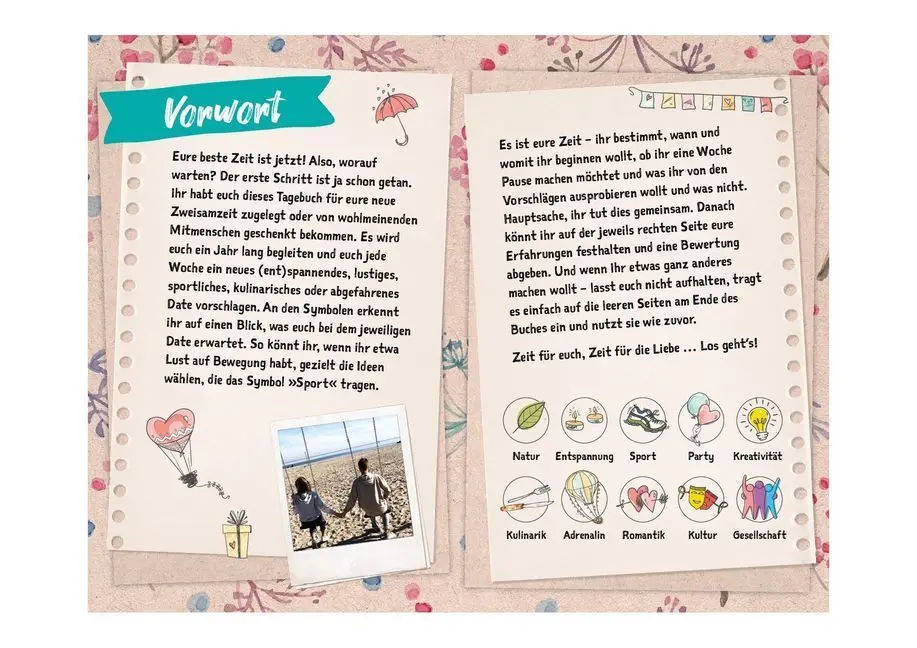 Vorwort
Eure beste Zeit ist jetzt! Also, worauf
warten? Der erste Schritt ist ja schon getan.
Ihr habt euch dieses Tagebuch für eure neue
Zweisamzeit zugelegt oder von wohlmeinenden
Mitmenschen geschenkt bekommen. Es wird
euch ein Jahr lang begleiten und euch jede
Woche ein neues (ent)spannendes, lustiges,
sportliches, kulinarisches oder abgefahrenes
Date vorschlagen. An den Symbolen erkennt
ihr auf einen Blick, was euch bei dem jeweiligen
Date erwartet. So könnt ihr, wenn ihr etwa
Lust auf Bewegung habt, gezielt die Ideen
wählen, die das Symbol »Sport« tragen.
Es ist eure Zeit – ihr bestimmt, wann und
womit ihr beginnen wollt, ob ihr eine Woche
Pause machen möchtet und was ihr von den
Vorschlägen ausprobieren wollt und was nicht.
Hauptsache, ihr tut dies gemeinsam. Danach
könnt ihr auf der jeweils rechten Seite eure
Erfahrungen festhalten und eine Bewertung
abgeben. Und wenn Ihr etwas ganz anderes
machen wollt – lasst euch nicht aufhalten, tragt
es einfach auf die leeren Seiten am Ende des
Buches ein und nutzt sie wie zuvor.
Zeit für euch, Zeit für die Liebe ... Los geht's!
Natur Entspannung Sport Party Kreativität
Kulinarik Adrenalin Romantik Kultur Gesellschaft